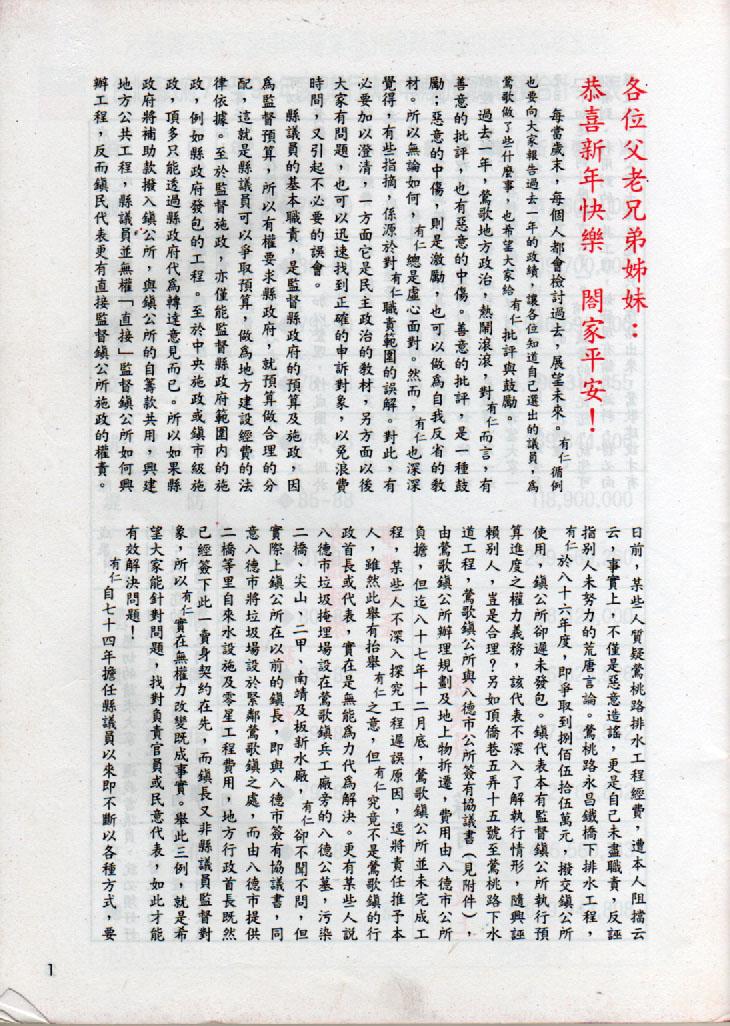 各位父老兄弟姊妹：
恭喜新年快樂　閤家平安！
每當歲末，每個人都會檢討過去，展望未來。有仁循例
也要向大家報告過去一年的政績，讓各位知道自己選出的議員，為
鶯歌做了些什麼事，也希望大家給有仁批評與鼓勵。
過去一年，鶯歌地方政治，熱鬧滾滾，對有仁而言，有
善意的批評，也有惡意的中傷。善意的批評，是一種鼓
勵；惡意的中傷，則是激勵，也可以做為自我反省的教
材。所以無論如何，有仁總是虛心面對。然而，有仁也深深
覺得，有些指摘，係源於對有仁職責範圍的誤解。對此，有
必要加以澄清，一方面它是民主政治的教材，另方面以後
大家有問題，也可以迅速找到正確的申訴對象，以免浪費
時間，又引起不必要的誤會。
縣議員的基本職責，是監督縣政府的預算及施政，因
為監督預算，所以有權要求縣政府，就預算做合理的分
配，這就是縣議員可以爭取預算，做為地方建設經費的法
律依據。至於監督施政，亦僅能監督縣政府範圍內的施
政，例如縣政府發包的工程。至於中央施政或鎮市級施
政，頂多只能透過縣政府代為轉達意見而已。所以如果縣
政府將補助款撥入鎮公所，與鎮公所的自籌款共用，興建
地方公共工程，縣議員並無權「直接」監督鎮公所如何興
辦工程，反而鎮民代表更有直接監督鎮公所施政的權責。
日前，某些人質疑鶯桃路排水工程經費，遭本人阻擋云
云，事實上，不僅是惡意造謠，更是自己未盡職責，反誣
指別人未努力的荒唐言論。鶯桃路永昌鐵橋下排水工程，
有仁於八十六年度，即爭取到捌佰伍拾伍萬元，撥交鎮公所
使用，鎮公所卻遲未發包。鎮代表本有監督鎮公所執行預
算進度之權力義務，該代表不深入了解執行情形，隨興誣
賴別人，豈是合理？另如頂僑巷五弄十五號至鶯桃路下水
道工程，鶯歌鎮公所與八德市公所簽有協議書（見附件），
由鶯歌鎮公所辦理規劃及地上物拆遷，費用由八德市公所
負擔，但迄八十七年十二月底，鶯歌鎮公所並未完成工
程，某些人不深入探究工程遲誤原因，逕將責任推予本
人，雖然此舉有抬舉有仁之意，但有仁究竟不是鶯歌鎮的行
政首長或代表，實在是無能為力代為解決。更有某些人說
八德市垃圾掩埋場設在鶯歌鎮兵工廠旁的八德公墓，污染
二橋、尖山、二甲、南靖及板新水廠，有仁卻不聞不問，但
實際上鎮公所在以前的鎮長，即與八德市簽有協議書，同
意八德市將垃圾場設於緊鄰鶯歌鎮之處，而由八德市提供
二橋等里自來水設施及零星工程費用，地方行政首長既然
已經簽下此一賣身契約在先，而鎮長又非縣議員監督對
象，所以有仁實在無權力改變既成事實。舉此三例，就是希
望大家能針對問題，找對負責官員或民意代表，如此才能
有效解決問題！
有仁自七十四年擔任縣議員以來即不斷以各種方式，要
1